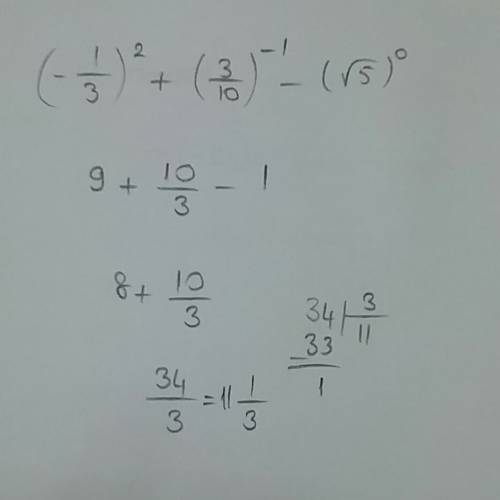 (-1/3)² + (3/10)⁻¹ - (√5)⁰
9 + 10/3 - 1
8 + 10/3
34/3 = 11 1/3
34 | 3
-33 | 11
1